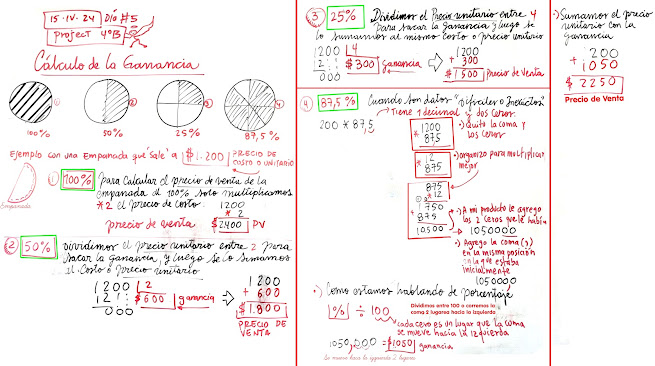 15·IV·24 Día #5
Project 4ºB
Cálculo de la Ganancia
① ② ③ ④
100% 50% 25% 87,5%
Ejemplo con una Empanada que "Sale" a $1.200 PRECIO DE COSTO O UNITARIO
Empanada
① 100% para calcular el precio de venta de la
empanada al 100% solo multiplicamos
*2 el precio de costo.
1200
* 2
precio de venta $2400 PV
② 50% Dividimos el precio unitario entre 2 para
sacar la ganancia, y luego se lo sumamos
al Costo o precio unitario
1200 2
12 $600 ganancia
000
1200
+ 600
$1.800
PRECIO DE VENTA
③ 25% Dividimos el Precio unitario entre 4
para sacar la Ganancia y luego se
lo sumamos al mismo costo o precio unitario
1200 4
12 $300 Ganancia
1200
+ 300
$1500 Precio de Venta
④ 87,5% Cuando son datos
Tiene 1 decimal y dos Ceros
200 * 87,5
1200
* 875
·) Quito la coma y
los ceros
12
* 875
·) organizo para multiplicar
mejor
875
* 12
1750
+ 875
10500
·) A mi producto le agrego
los 2 Ceros que le había
1050000
·) Agrego la coma (,)
en la misma posición
en la que estaba
inicialmente
1050000
·) Como estamos hablando de porcentaje
1% ÷ 100
Dividimos entre 100 o corremos la
coma 2 lugares hacia la izquierda
cada cero es un lugar que la coma
se mueve hacia la izquierda
1050,000 = $1050 ganancia
Se mueve hacia la izquierda 2 lugares
·) Sumamos el precio
unitario con la
ganancia
200
+ 1050
$2250
Precio de Venta